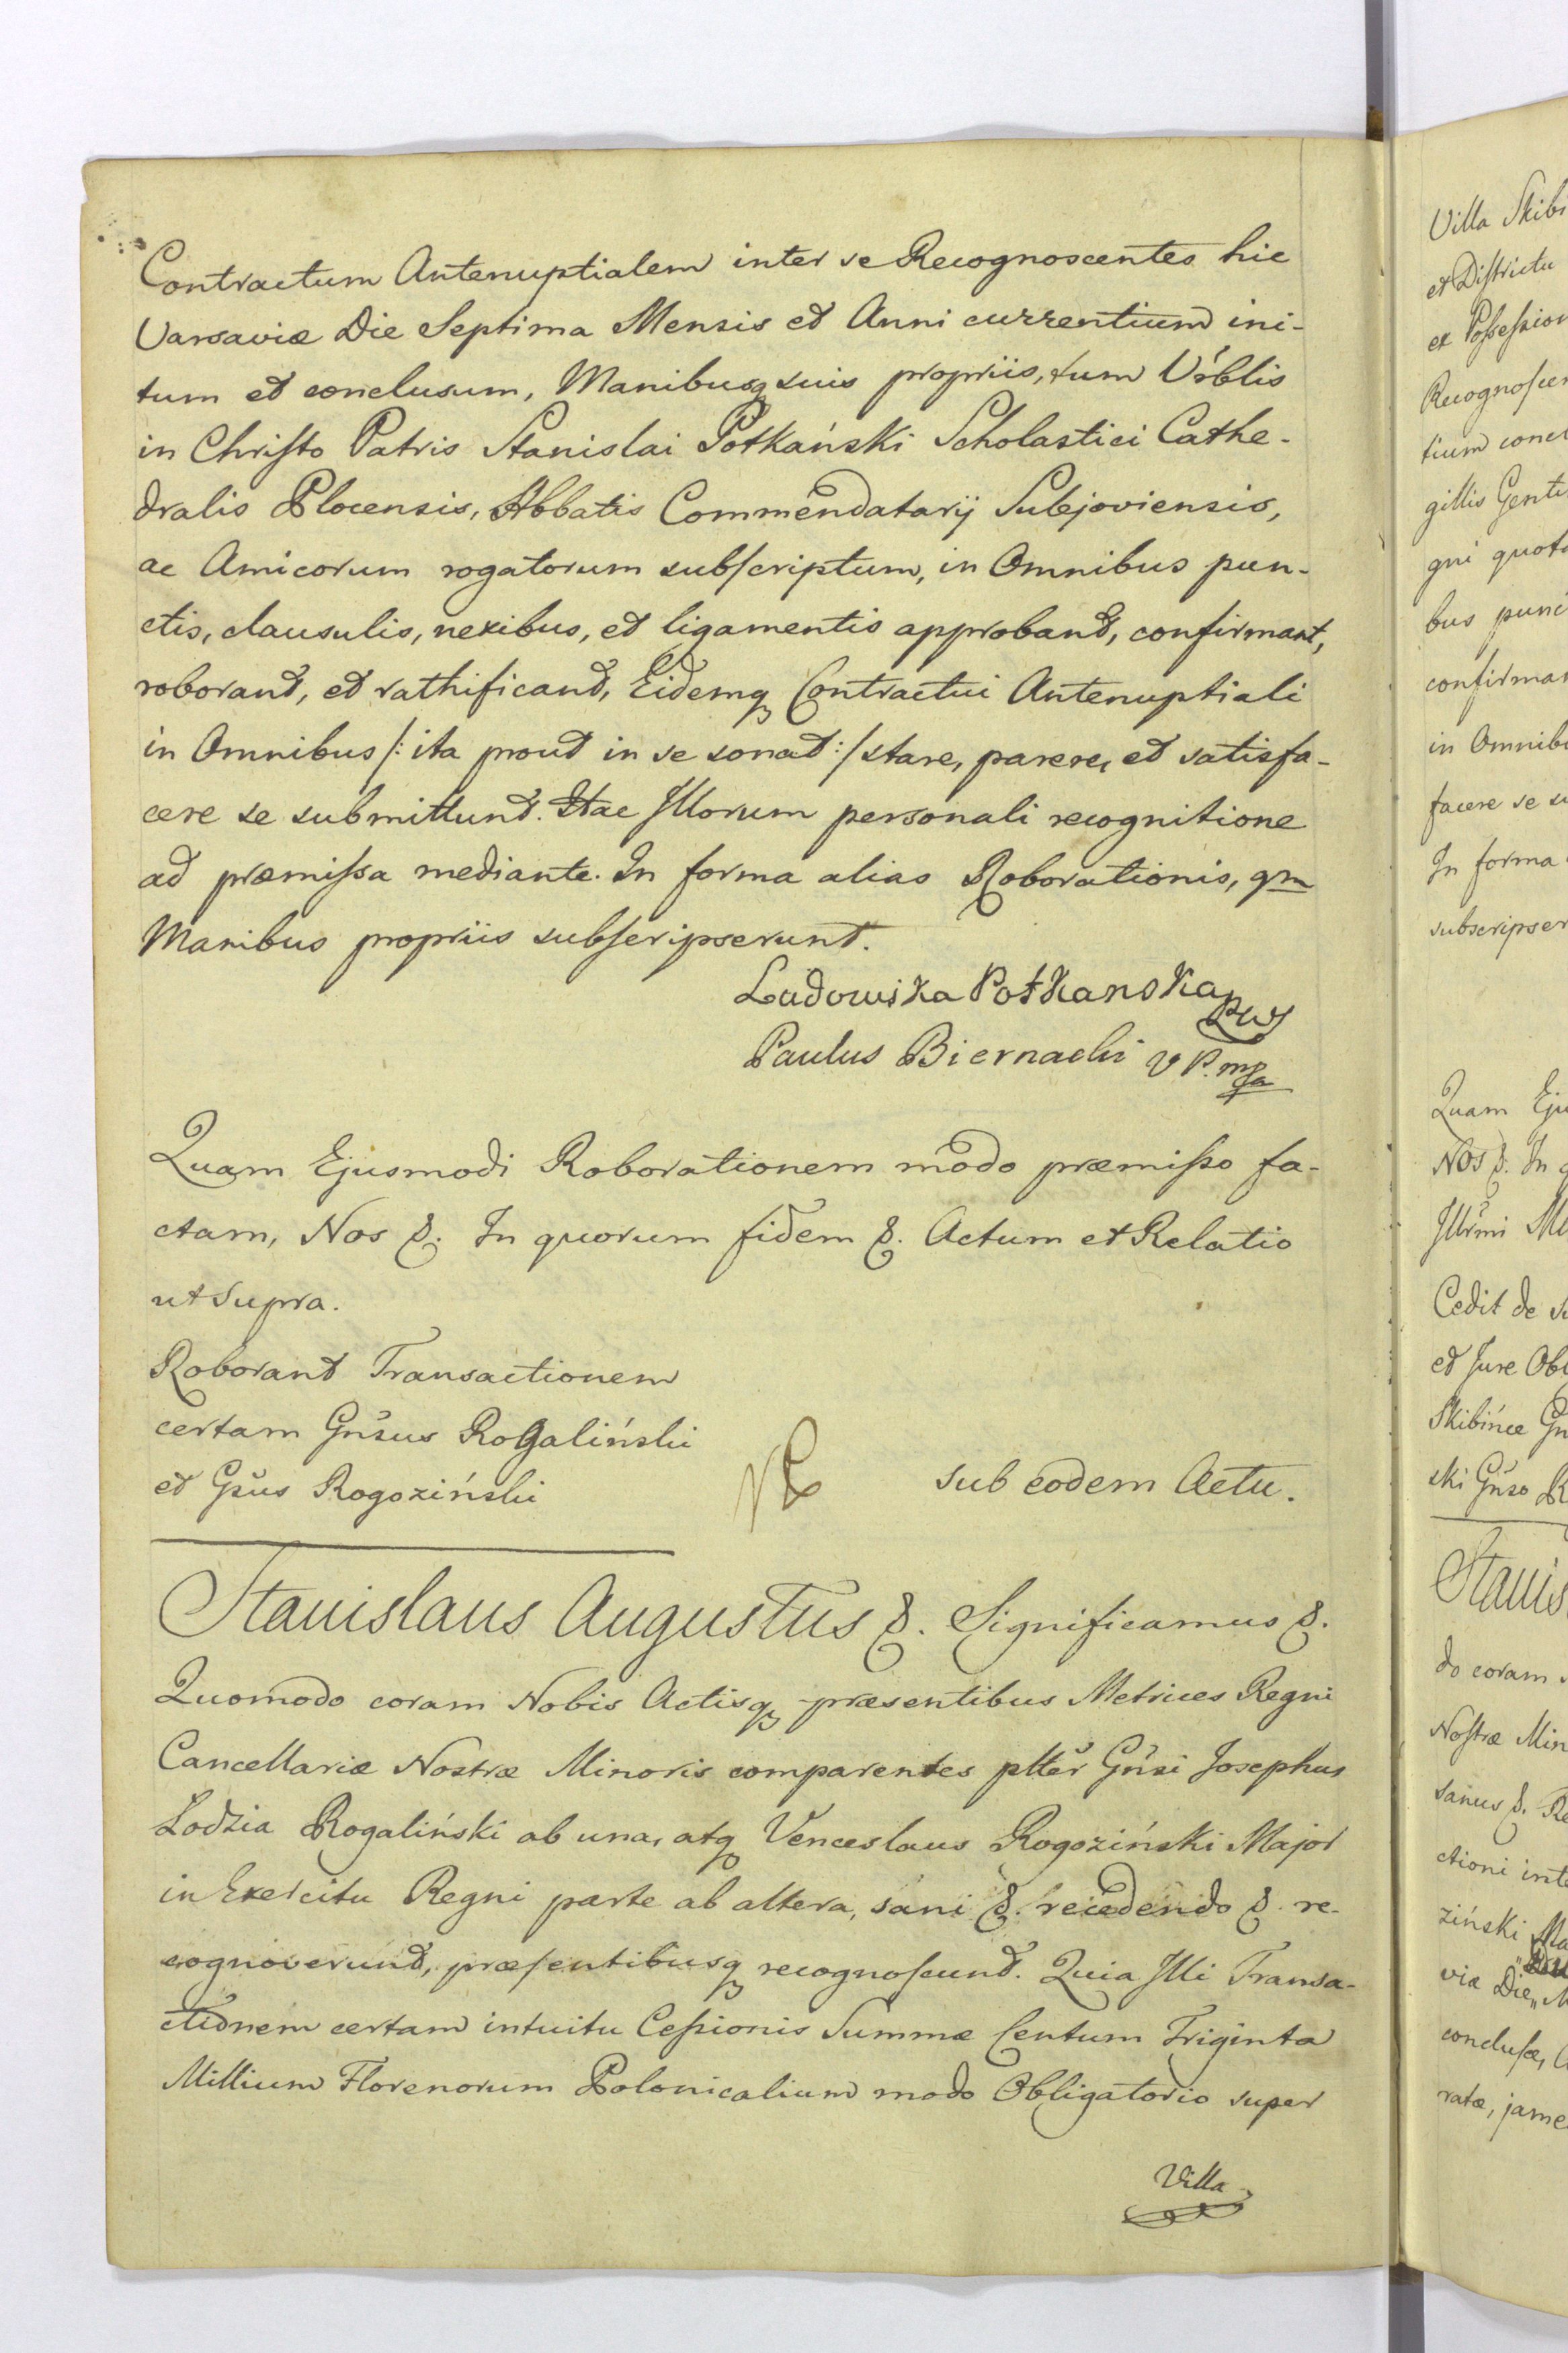 Contractum Antenuptialem inter se Recognoscentes hic
Varsaviæ Die Septima Mensis et Anni currentium ini-
tum et conclusum, Manibusq suis propriis, tum Vrblis
in Christo Patris Stanislai Potkański Scholastici Cathe-
dralis Plocensis, Abbatis Commendatarij Sulejoviensis,
ac Amicorum rogatorum subscriptum, in Omnibus pun-
ctis, clausulis, nexibus, et ligamentis approbant, confirmant,
roborant, et rathificant, Eidemq Contractui Antenuptiali
in Omnibus /: ita prout in se sonat :/ stare, parere, et satisfa-
cere se submittunt. Hac Illorum personali recognitione
ad præmissa mediante. In forma alias Roborationis, qm
Manibus propriis subscripserunt.
Ludowika Potkanska
Paulus Biernacki V P. mpa
Quam Ejusmodi Roborationem modo præmisso fa-
ctam, Nos &. In quorum fidem &. Actum et Relatio
ut Supra.
Roborant Transactionem
certam Gnsus Rogaliński
et Gsus Rogoziński
sub eodem Actu.
Stanislaus Augustus &. Significamus &.
Quomodo coram Nobis Actisq præsentibus Metrices Regni
Cancellariæ Nostræ Minoris comparentes plter Gnsi Josephus
Lodzia Rogaliński ab una, atq Venceslaus Rogoziński Major
in Exercitu Regni parte ab altera, sani &. recedendo &. re-
cognoverunt, præsentibusq recognoscunt. Quia Illi Transa-
ctionem certam intuitu Cessionis Summæ Centum Triginta
Millium Florenorum Polonicalium modo Obligatorio super
Villa
Villa Skibi
et Districtu
ex Possession
Recognoscen
tium concl
gillis Genti
gni quota
bus punc
confirman
in Omnib
facere se su
In forma
subscripser
Quam Eju
Nos &. In q
Cedit de
et Jure Obl
Skibińce Gn
ski Gnso R
Stanis
do coram
Nostræ Min
sanus &. Re
ctioni inte
ziński Ma
viæ Die
conclusæ,
ratæ, jame